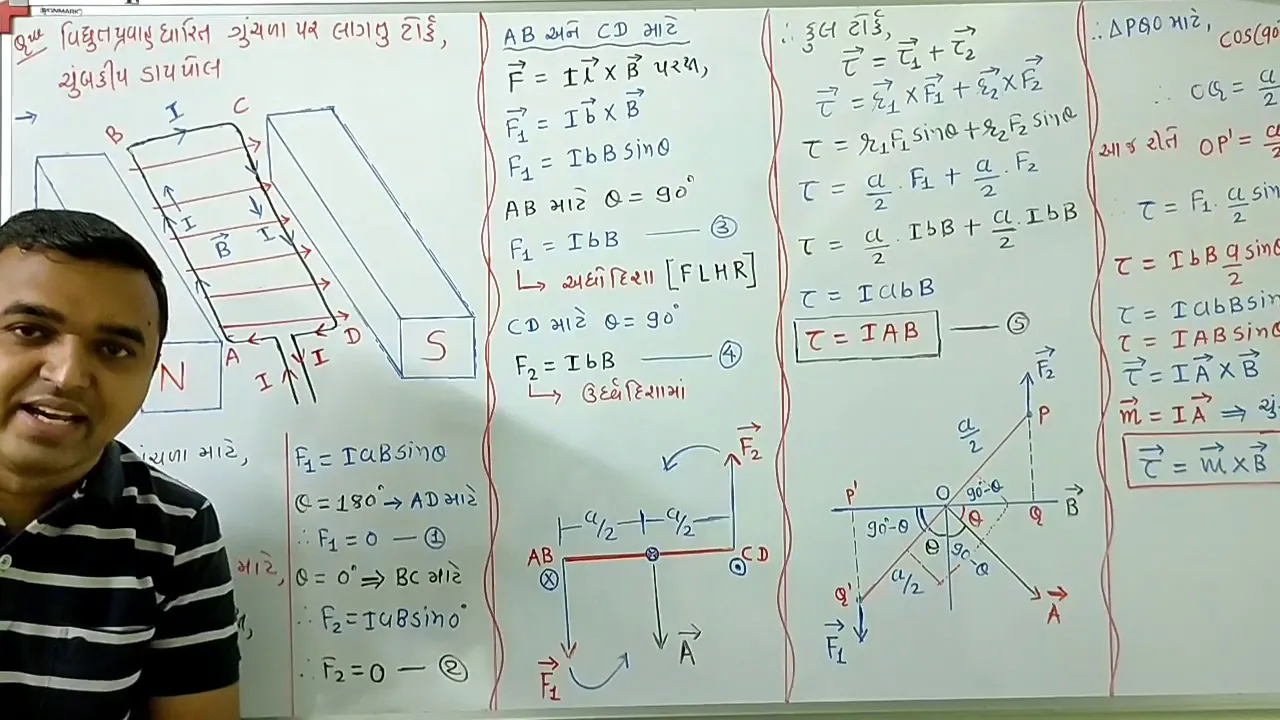 Que વિદ્યુતપ્રવાહ ધારિત ગુંચળા પર લાગતુ ટૉર્ક,
ચુંબકીય ડાયપોલ
B
I
C
I
B⃗
I
A
D
I
I
N
S
ગુંચળા માટે,
માટે,
F₁ = IaBsinθ
θ = 180° → AD માટે
∴ F₁ = 0 — ①
θ = 0° ⇒ BC માટે
∴ F₂ = IaBsin0°
∴ F₂ = 0 — ②
AB અને CD માટે
F⃗ = I l⃗ × B⃗ પરથી,
F⃗₁ = I b⃗ × B⃗
F₁ = IbB sinθ
AB માટે θ = 90°
F₁ = IbB — ③
↳ અધોદિશા [FLHR]
CD માટે θ = 90°
F₂ = IbB — ④
↳ ઉર્ધ્વદિશામાં
F⃗₂
a/2 a/2
AB
CD
A⃗
F⃗₁
∴ કુલ ટૉર્ક,
τ⃗ = τ⃗₁ + τ⃗₂
τ⃗ = r⃗₁ × F⃗₁ + r⃗₂ × F⃗₂
τ = r₁F₁sinθ + r₂F₂sinθ
τ = a/2 . F₁ + a/2 . F₂
τ = a/2 . IbB + a/2 . IbB
τ = IabB
τ = IAB — ⑤
F⃗₂
P
a/2
P'
O
90°-θ
Q
B⃗
90°-θ
θ
θ
90-θ
a/2
Q'
A⃗
F⃗₁
∴ ΔPQO માટે,
COS(90
∴ OQ = a/2
આજ રીતે OP' = a/2
∴ τ = F₁ . a/2 sin
τ = IbB a/2 sinθ
τ = IabBsin
τ = IABsinθ
τ⃗ = IA⃗ × B⃗
m⃗ = IA⃗ ⇒ ચું
τ⃗ = m⃗ × B⃗